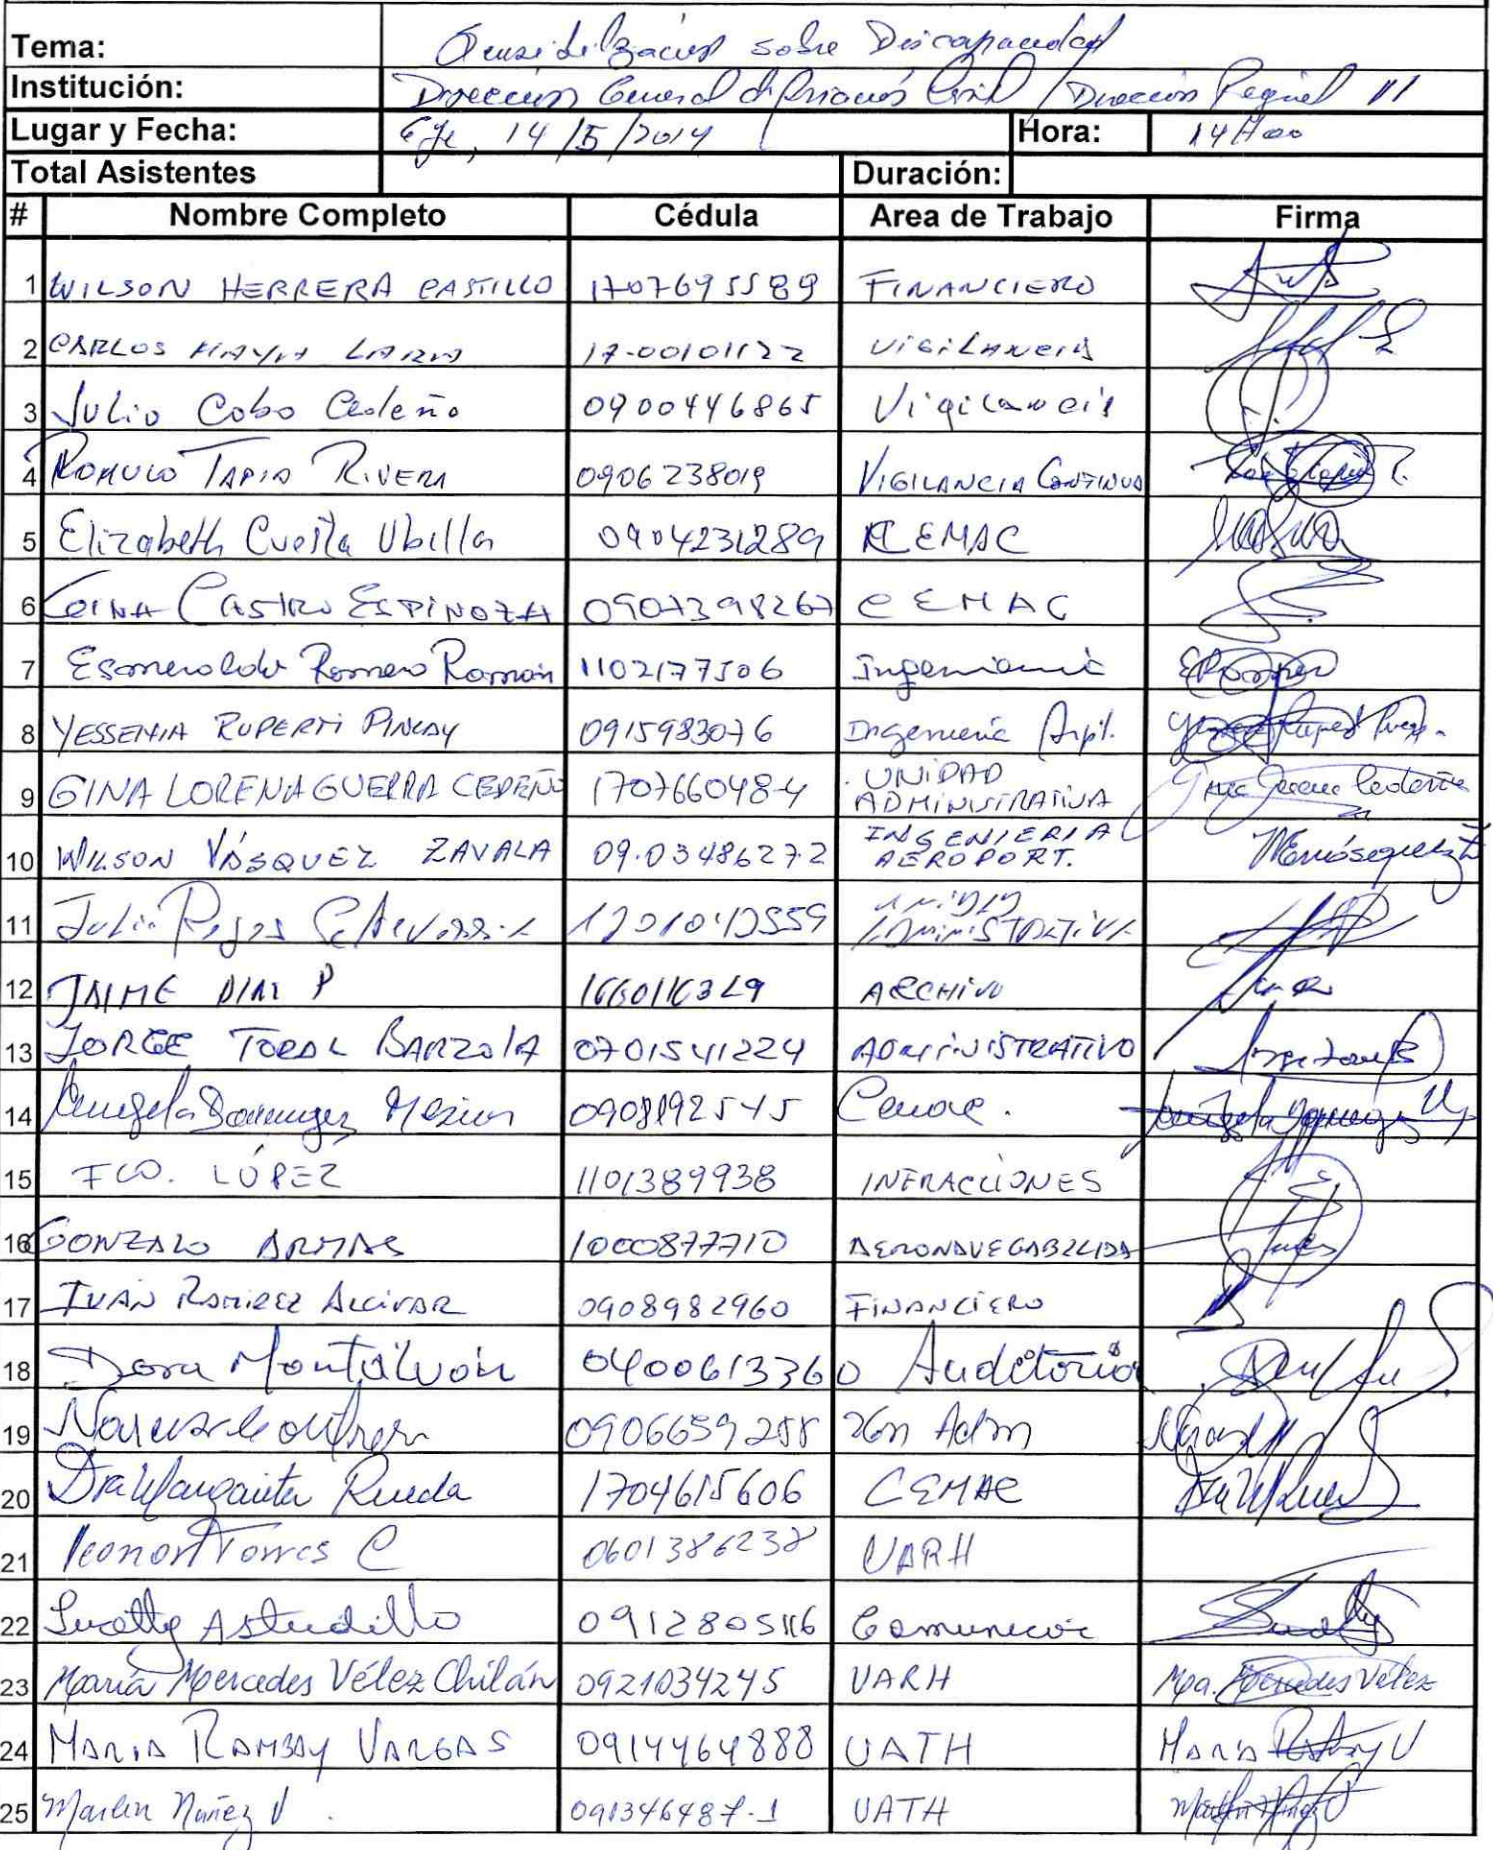 Tema: Sensibilización sobre Discapacidad
Institución: Dirección General de Aviación Civil / Dirección Regional II
Lugar y Fecha: Gye, 14/5/2014 Hora: 14H00
Total Asistentes Duración:
# Nombre Completo Cédula Area de Trabajo Firma
1 WILSON HERRERA CASTILLO 1707695589 FINANCIERO
2 CARLOS LARA 17-00101122 VIGILANCIA
3 Julio Cobo Cedeño 0900446865 Vigilancia
4 ROMULO TAPIA RIVERA 0906238019 VIGILANCIA CONTINUA
5 Elizabeth Cuesta Ubilla 0904231289 CEMAC
6 CASTRO ESPINOZA 0907398267 CEMAC
7 Esmeralda Romero Román 1102177506 Ingeniería
8 YESSENIA RUPERTI PINCAY 0915983076 Ingeniería Arpt.
9 GINA LORENA GUERRA CEDEÑO 170766048-4 UNIDAD
ADMINISTRATIVA
10 WILSON VÁSQUEZ ZAVALA 09.03486272 INGENIERIA
AEROPORT.
11 Julio Rojas UNIDAD
ADMINISTRATIVA
12 JAIME DIAZ P ARCHIVO
13 JORGE TORAL BARZOLA 0701541224 ADMINISTRATIVO
14 Angela Domínguez 0908192545 Cemac.
15 FCO. LÓPEZ 1101389938 INFRACCIONES
16 GONZALO ARMAS 1000877710 AERONAVEGABILIDA
17 IVÁN RAMIREZ ALCIVAR 0908982960 FINANCIERO
18 Dora Montalván 0400613360 Auditoria
19 0906659288 Adm
20 Dra Margarita Rueda 1704615606 CEMAC
21 Leonor Torres C 0601386238 UARH
22 Lucetty Astudillo 0912805116 Comunicac
23 María Mercedes Vélez Chilán 0921034245 UARH Ma. Mercedes Vélez
24 MARIA RAMBAY VARGAS 0914464888 UATH MARIA Rambay V
25 Marlen Núñez V. 091346487-1 UATH Marlen Núñez V